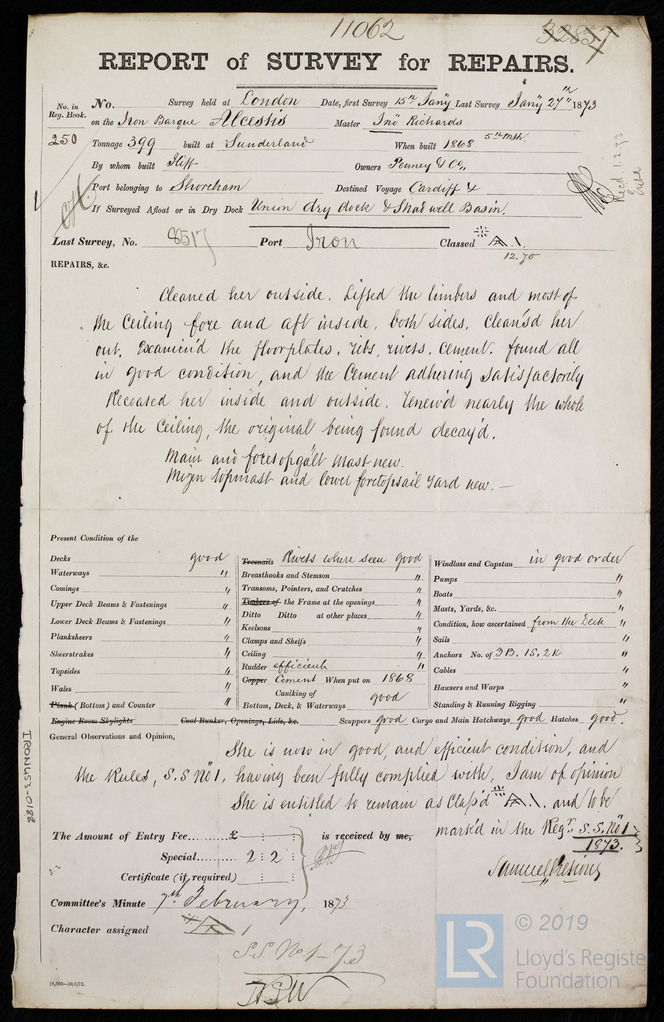 11062
3285
REPORT of SURVEY for REPAIRS.
No. in Reg. Book. No. Survey held at London Date, first Survey 15th Jany Last Survey Jany 27th 1873
on the Iron Barque Alcestis Master Jno Richards
250 Tonnage 399 built at Sunderland When built 1868 5th Mth
By whom built Iliff Owners Penney & Co,
Port belonging to Shoreham Destined Voyage Cardiff &
If Surveyed Afloat or in Dry Dock Union dry dock & Shadwell Basin.
Recd. 1.2.73
Last Survey, No. 8517 Port Iron Classed A 1.
12.70
REPAIRS, &c.
Cleaned her outside. Lifted the limbers and most of
the Ceiling fore and aft inside, both sides. Clean'd her
out. Examin'd the floorplates, ribs, rivets. cement. found all
in good condition, and the Cement adhering satisfactorily
Recoated her inside and outside. Renew'd nearly the whole
of the Ceiling, the original being found decay'd.
Main and foretopgalt Mast new.
Mizen topmast and lower foretopsail Yard new. —
Present Condition of the
Decks good
Waterways "
Comings "
Upper Deck Beams & Fastenings "
Lower Deck Beams & Fastenings "
Planksheers "
Sheerstrakes "
Topsides "
Wales "
Plank (Bottom) and Counter "
Treenails Rivets where seen good
Breasthooks and Stemson "
Transoms, Pointers, and Crutches "
Timbers of the Frame at the openings "
Ditto Ditto at other places "
Keelsons "
Clamps and Shelfs "
Ceiling "
Rudder efficient "
Copper Cement When put on 1868
Caulking of
Bottom, Deck, & Waterways good
Windlass and Capstan in good order
Pumps "
Boats "
Masts, Yards, &c. "
Condition, how ascertained from the Deck
Sails "
Anchors No. of 3B. 1S, 2K "
Cables "
Hawsers and Warps "
Standing & Running Rigging "
Engine Room Skylights Coal Bunker, Openings, Lids, &c. Scuppers good Cargo and Main Hatchways good Hatches good.
General Observations and Opinion,
She is now in good, and efficient condition, and
the Rules, S.S No 1, having been fully complied with, I am of opinion
She is entitled to remain as Class'd A 1. and to be
mark'd in the Regr. S.S. No 1
1873.
The Amount of Entry Fee £ : : is received by me,
Special 2 : 2 :
Certificate (if required) : :
Committee's Minute 7th February, 1873
Character assigned A 1
S S No 1-73
IRONUS3-0188
14,000—10/5/72.
© 2019
LR
Lloyd's Register
Foundation